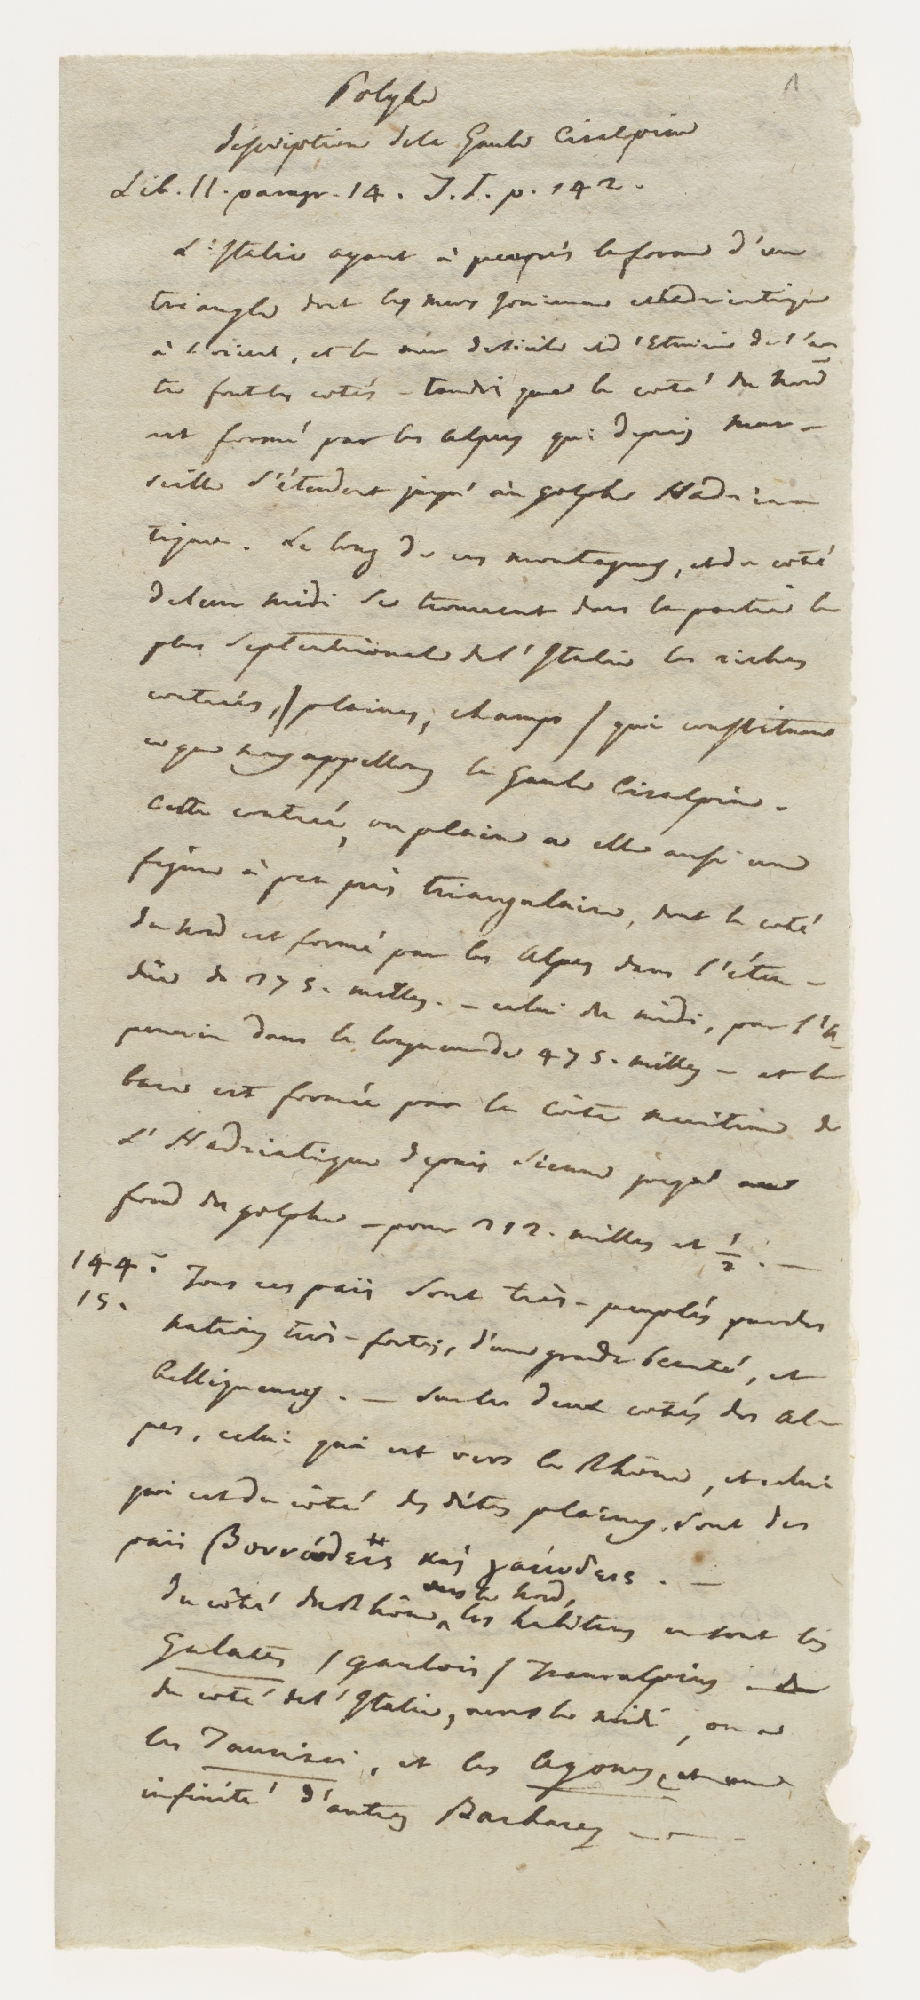 1
Polybe
description dela Gaule Cisalpine
Lib. II. paragr. 14. T. I. p. 142.
L'Italie ayant à peuprès la forme d'un
triangle dont les mers Jonienne et hadriatique
à l'orient, et la mer de Sicile et d'Etrurie de l'au
tre font les cotés - tandis que le coté du Nord
est formé par les Alpes qui depuis Mar-
seille s'étendent jusqu'au golphe Hadria-
tique. Le long de ces montagnes, et du coté
deleur midi se trouvent dans la partie la
plus septentrional del'Italie les riches
contrées, / plaines, champs / qui constituent
ce que nous appellons la Gaule Cisalpine.
Cette contrée, ou plaine a elle aussi une
figure à peu près triangulaire, dont le coté
du nord est formé par les Alpes dans l'éten-
düe de 275. milles. - celui du midi, par l'A-
pennin dans la longueur de 475. milles - et la
base est formée par la Côte maritime de
l'Hadriatique depuis Sienne jusqu'au
fond du golphe - pour 212. milles et 1/2. -
144. Tous ces païs sont très-peuplés par des
15. nations très-fortes, d'une grande beauté, et
belliqueuses. - Sur les deux cotés des Al-
pes, celui qui est vers le Rhône, et celui
qui est du côté des dites plaines, sont des
païs Βουνώδεις καὶ γαιώδεις. -
vers le nord,
du côté du Rhône, les habitans en sont les
Galates / gaulois / Transalpins
du coté del'Italie, vers le midi, on a
les Taurisci, et les Agones, et une
infinité d'autres Barbares -